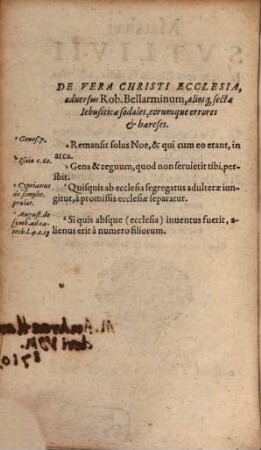 DE VERA CHRISTI ECCLESIA,
aduersus Rob. Bellarminum, aliosq; sectæ
Iebusiticæ sodales, eorumque errores
& hæreses.
a Genes. 7.
a Remansit solus Noe, & qui cum eo erant, in
arca.
b Isaia c. 60.
b Gens & regnum, quod non seruierit tibi, per-
ibit.
c Cyprianus
de simplic.
prælat.
c Quisquis ab ecclesia segregatus adulteræ iun-
gitur, à promissis ecclesiæ separatur.
d August. de
symb. ad ca-
tech. l. 4. c. 13
d Si quis absque (ecclesia) inuentus fuerit, a-
lienus erit à numero filiorum.